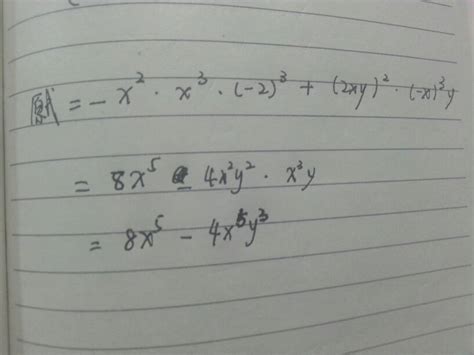 原式 = - x² · x³ · (-2)³ + (2xy)² · (-x)³y
= 8x⁵ - 4x²y² · x³y
= 8x⁵ - 4x⁵y³